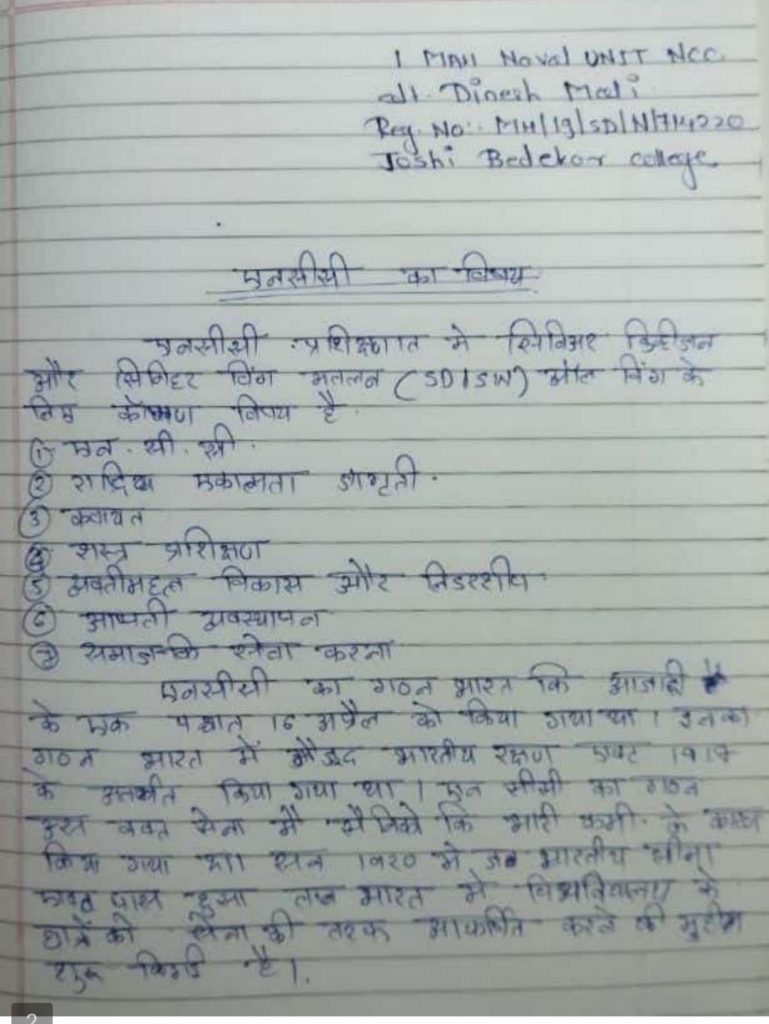 1 MAH Naval UNIT NCC.
Dinesh Mali
Reg. No:- MH/19/SD/N/714220
Joshi Bedekar college.
एनसीसी का विषय
एनसीसी प्रशिक्षणात मे सिनिअर डिव्हीजन
और विंग मतलब (SD/SW) विंग के
लिए विषय है.
① एन. सी. सी.
② एकात्मता जागृती.
③ कवायत
④ शस्त्र प्रशिक्षण
⑤ विकास और
⑥ आप्पती व्यवस्थापन
⑦ समाज कि सेवा करना
एनसीसी का गठन भारत कि आजादी
के एक पश्चात 16 अप्रैल को किया गया था। उनका
गठन भारत में मौजूद भारतीय रक्षण एक्ट 1917
के अंतर्गत किया गया था। एन सीसी का गठन
उस वक्त सेना मे सैनिको कि भारी कमी के कारण
किया गया था। सन 1920 मे जब भारतीय
एक्ट पास हुआ तब भारत मे विश्वविद्यालय के
छात्रों को सेना की तरफ आकर्षित करने की मुहीम
शुरू है।.
2